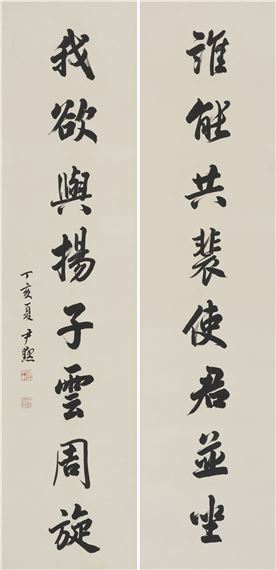 誰能共裴使君並坐
我欲與揚子雲周旋
丁亥夏 尹默